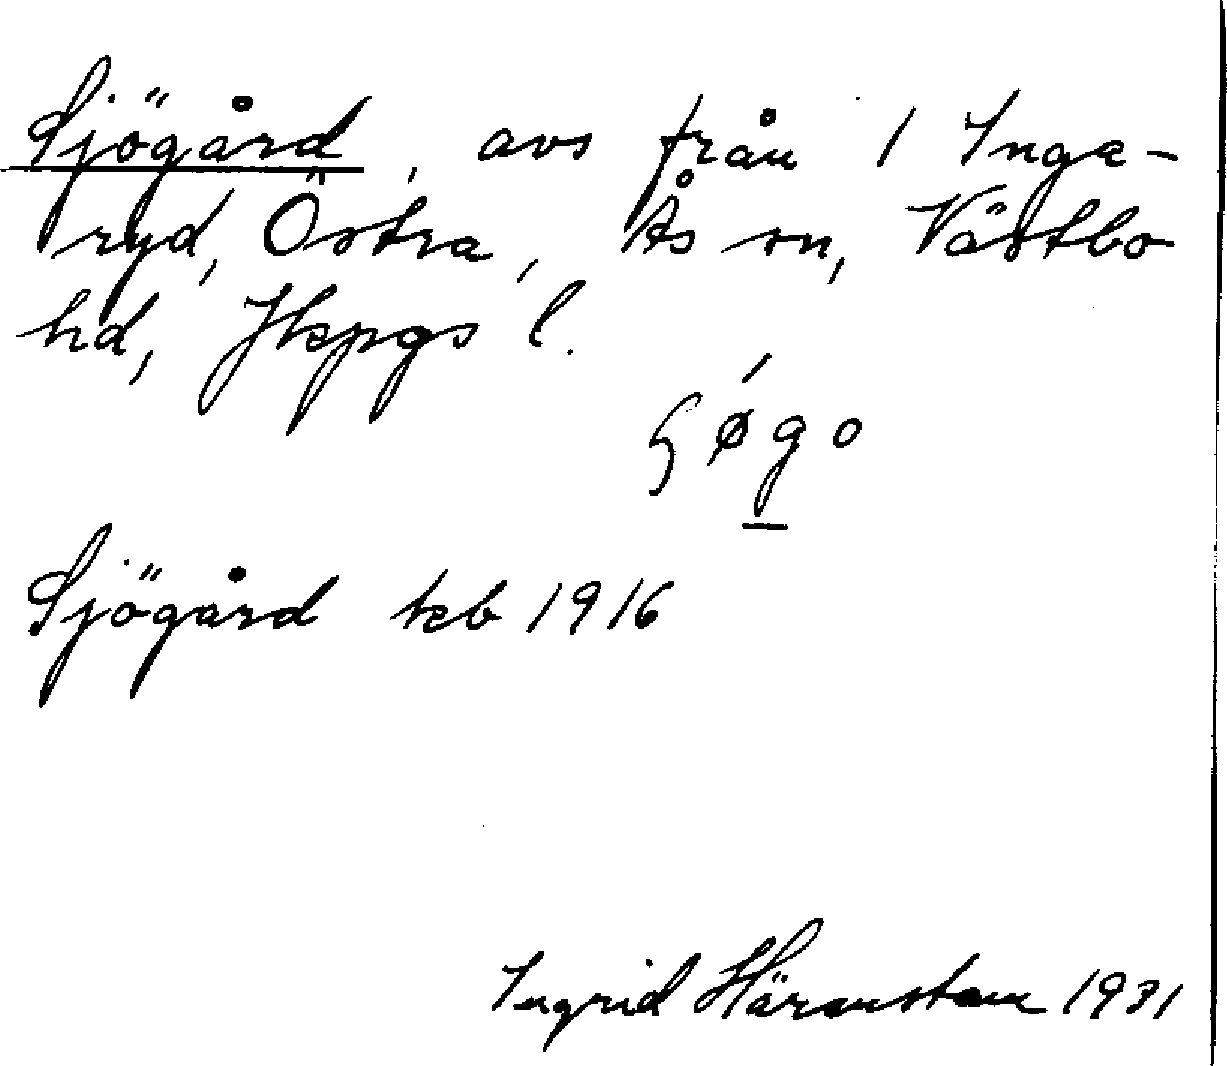 Sjögård, avs från 1 Inga-
ryd, Östra, Ås sn, Västbo
hd, Jkpgs l.
Sjögård teb 1916
Ingrid Häramstam 1931